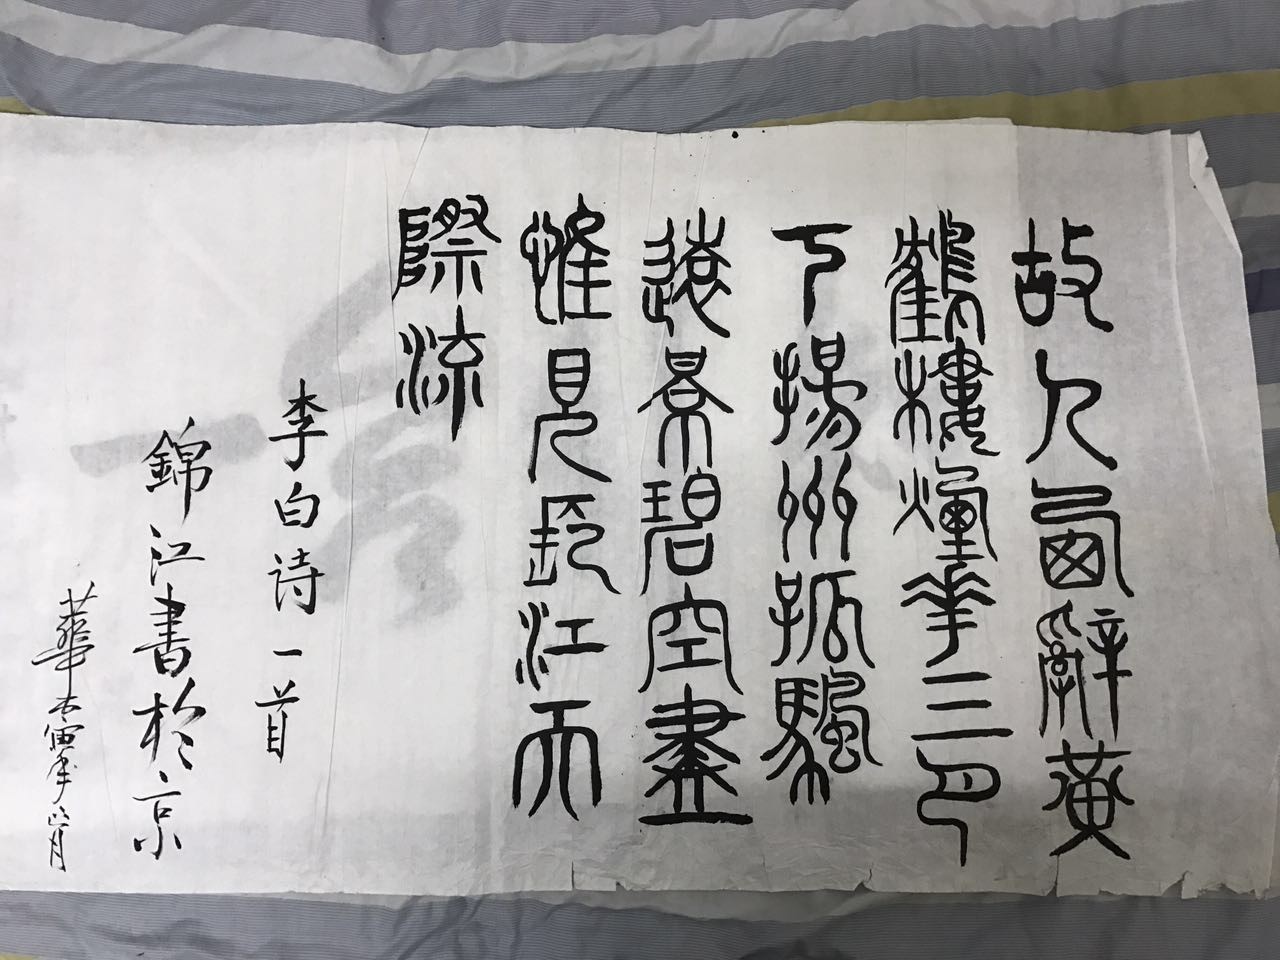 故人西辭黃
鶴樓煙華三月
下揚州孤颿
遠景碧空盡
惟見長江天
際流
李白诗一首
錦江書於京
華寅年月